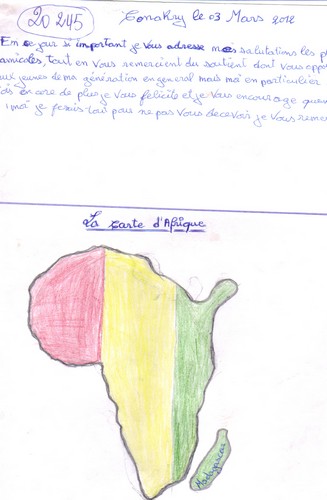 20 245
Conakry le 03 Mars 2012
En ce jour si important je vous adresse mes salutations les pl
amicales, tout en vous remercient du soutient dont vous appo
aux jeunes de ma génération en general mais moi en particulier
encore de plus je vous felicite et je vous encourage quen
moi je ferais tous pour ne pas vous decevoir je vous reme
La carte d'Afrique
Madagascar